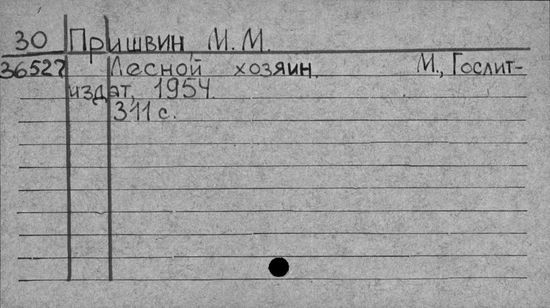 30 Пришвин, М. М.
36527 Лесной хозяин. М., Гослит-
издат, 1954.
311 с.